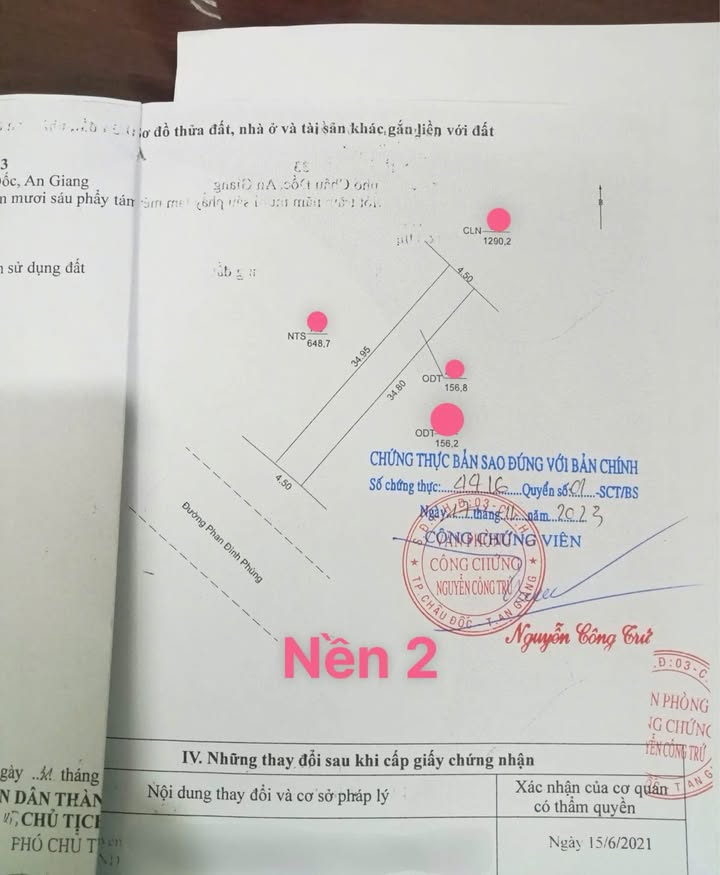 ơ đồ thửa đất, nhà ở và tài sản khác gắn liền với đất
3
ốc, An Giang
n mươi sáu phẩy tám
n sử dụng đất
CLN
1290,2
4.50
NTS
648,7
34.95
34.80
ODT
156,8
ODT
156,2
4.50
Đường Phan Đình Phùng
CHỨNG THỰC BẢN SAO ĐÚNG VỚI BẢN CHÍNH
Số chứng thực: 4416 Quyển số 01 -SCT/BS
Ngày tháng 11 năm 2023
CÔNG CHỨNG VIÊN
VĂN PHÒNG
CÔNG CHỨNG
NGUYỄN CÔNG TRỨ
TP. CHÂU ĐỐC - T. AN GIANG
Nguyễn Công Trứ
Nền 2
.Đ:03-C.
N PHÒNG
NG CHỨNG
YỄN CÔNG TRỨ
T AN G
IV. Những thay đổi sau khi cấp giấy chứng nhận
Nội dung thay đổi và cơ sở pháp lý
Xác nhận của cơ quan
có thẩm quyền
Ngày 15/6/2021
gày tháng
N DÂN THÀN
CHỦ TỊCH
PHÓ CHỦ T